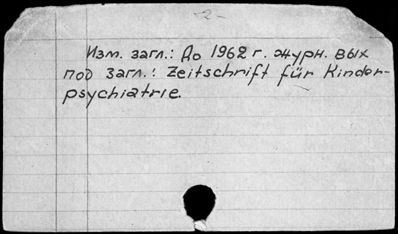 -2-
Изм. загл.: До 1962 г. журн. вых
под загл.: Zeitschrift für Kinder-
psychiatrie.